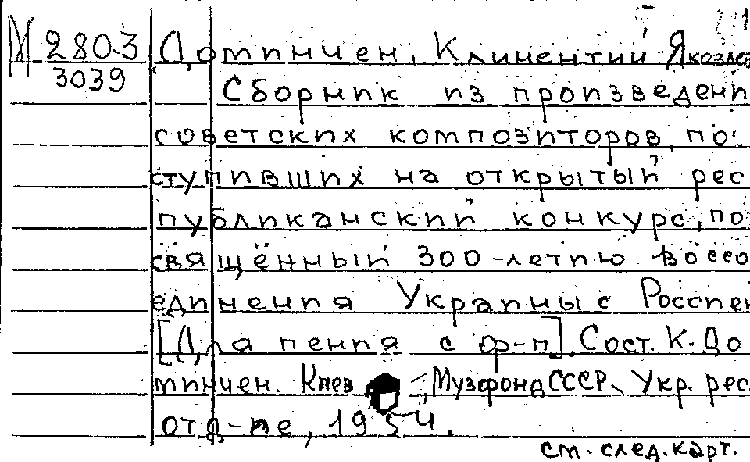 М 280-3
3039
Дотинчен, Климентий Яковлев
Сборник из произведени
советских композиторов, по-
ступивших на открытый рес
публиканский конкурс, по
священный 300-летию воссо
единения Украины с Россией
[Для пения с ф-п]. Сост. К. До
минчен. Киев, Музфонд СССР, Укр. рес.
отд-ие, 1954.
см. след. карт.